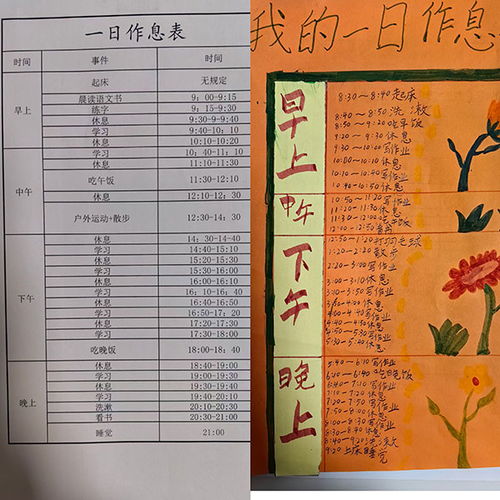 一日作息表
时间 事件 时间
早上
起床 无规定
晨读语文书 9：00-9:15
练字 9；15-9:30
休息 9:30-9:40
学习 9:40-10；10
休息 10:10-10:20
中午
学习 10；40-11；10
休息 11:10-11:30
吃午饭 11:30-12:10
休息 12:10-12；30
户外运动+散步 12:30-14；30
下午
休息 14；30-14:40
学习 14:40-15:10
休息 15:20-15:30
学习 15:30-16:00
休息 16:00-16:10
学习 16；10-16；40
休息 16:40-16:50
学习 16:50-17；20
休息 17:20-17:30
学习 17:30-18:00
吃晚饭 18:00-18；40
晚上
休息 18:40-19:00
学习 19:00-19:30
休息 19:30-19:40
学习 19:40-20:10
洗漱 20:10-20:30
看书 20:30-21:00
睡觉 21:00
我的一日作息
早上
8:30～8:40起床
8:40～8:50洗漱
8:50～9:20吃早饭
9:20～9:30休息
9:30～10:00写作业
10:00～10:10休息
10:10～10:40写作业
10:40～10:50休息
中午
10:50～11:20写作业
11:20～11:30休息
11:30～12:00吃午饭
12:00～12:50
下午
12:50～1:20打羽毛球
1:20～2:20散步
2:20～3:00写作业
3:00～3:10休息
3:10～3:50写作业
3:50～4:00休息
4:00～4:40写作业
4:40～4:50休息
4:50～5:30写作业
5:30～5:40休息
晚上
5:40～6:10写作业
6:10～6:40吃晚饭
6:40～7:10写作业
7:10～7:20休息
7:20～7:50写作业
7:50～8:00休息
8:00～8:30写作业
8:30～8:40休息
8:40～9:20洗漱
9:20上床睡觉